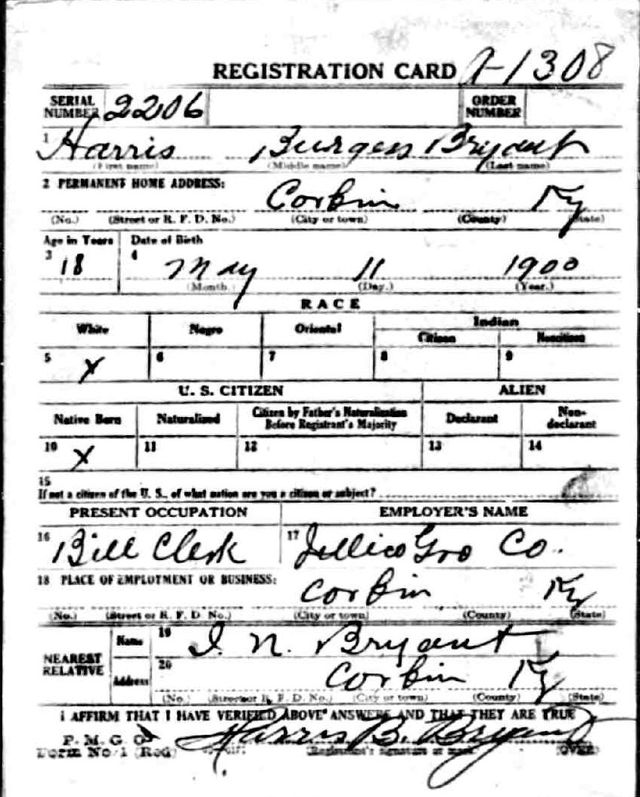 REGISTRATION CARD A-1308
SERIAL NUMBER 2206 ORDER NUMBER
1 Harris Burgess Bryant
(First name) (Middle name) (Last name)
2 PERMANENT HOME ADDRESS: Corbin Ky
(No.) (Street or R. F. D. No.) (City or town) (County) (State)
Age in Years Date of Birth
3 18 4 May 11 1900
(Month.) (Day.) (Year.)
RACE
White Negro Oriental Indian
Citizen Noncitizen
5 X 6 7 8 9
U. S. CITIZEN ALIEN
Native Born Naturalized Citizen by Father's Naturalization Before Registrant's Majority Declarant Non-declarant
10 X 11 12 13 14
15
If not a citizen of the U. S., of what nation are you a citizen or subject?
PRESENT OCCUPATION EMPLOYER'S NAME
16 Bill Clerk 17 Jellico Gro Co.
18 PLACE OF EMPLOYMENT OR BUSINESS: Corbin Ky
(No.) (Street or R. F. D. No.) (City or town) (County) (State)
NEAREST RELATIVE Name 19 I. N. Bryant
Address 20 Corbin Ky
(No.) (Street or R. F. D. No.) (City or town) (County) (State)
I AFFIRM THAT I HAVE VERIFIED ABOVE ANSWERS AND THAT THEY ARE TRUE
P. M. G. O.
Form No. 1 (Red) Harris B. Bryant
(Registrant's signature or mark) (OVER)